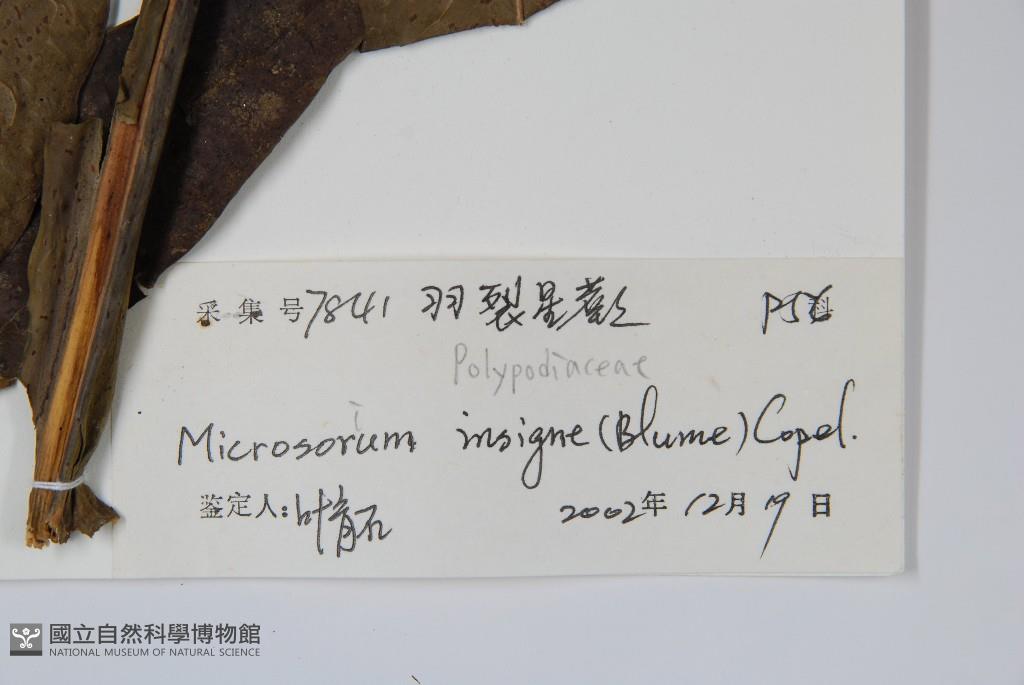 采集号 7841 羽裂星蕨 P56科
Polypodiaceae
i
Microsorum insigne (Blume) Copel.
鉴定人: 叶育石 2002年 12月 19日
國立自然科學博物館
NATIONAL MUSEUM OF NATURAL SCIENCE